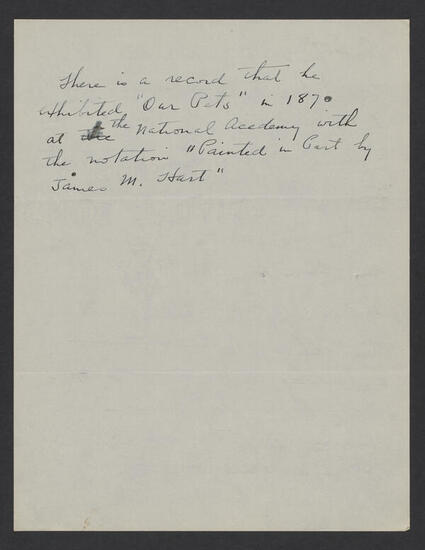 There is a record that he
exhibited "Our Pets" in 1870
at the the National Academy with
the notation "Painted in Part by
James M. Hart"